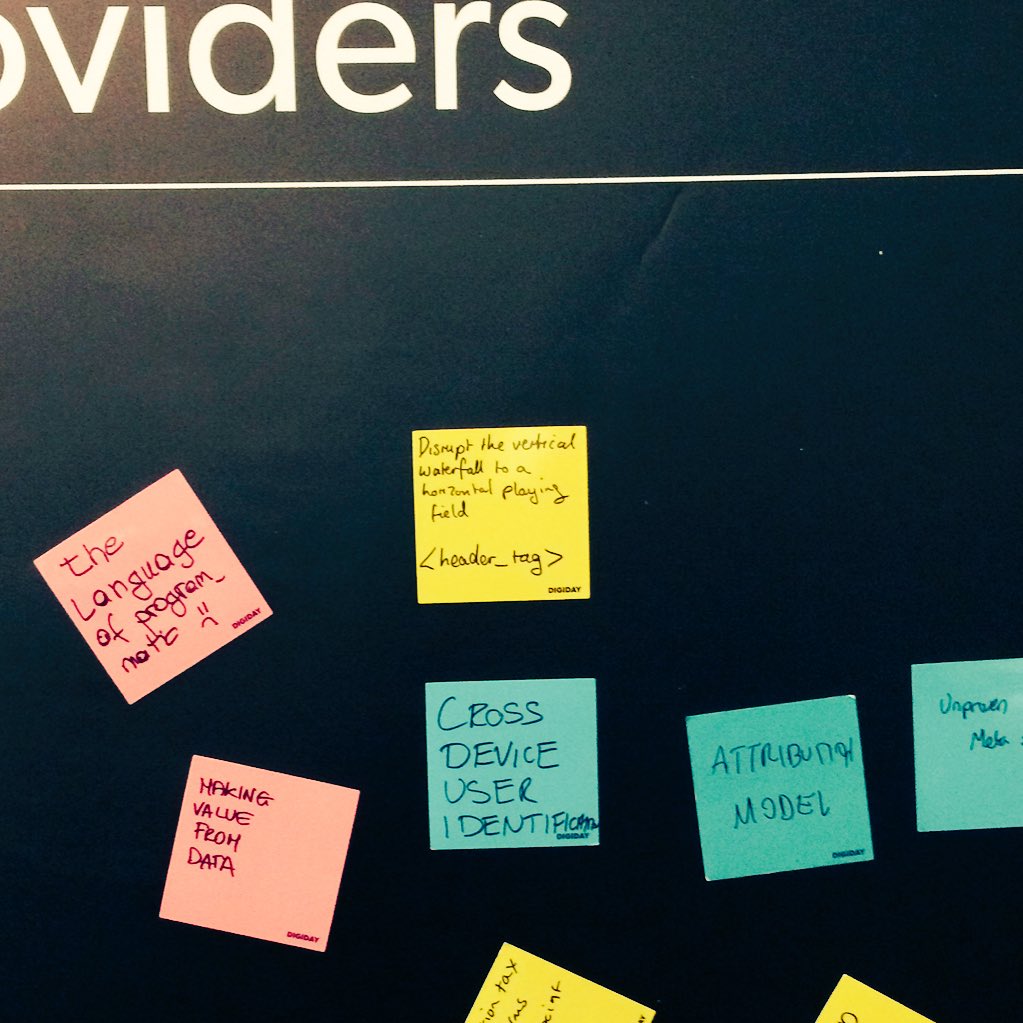 oviders
Disrupt the vertical
waterfall to a
horizontal playing
field
<header_tag>
DIGIDAY
the
Language
of program_
matic :(
DIGIDAY
CROSS
DEVICE
USER
IDENTIFICATION
DIGIDAY
ATTRIBUTION
MODEL
DIGIDAY
Unproven
Meta
MAKING
VALUE
FROM
DATA
DIGIDAY
tax
DIGIDAY